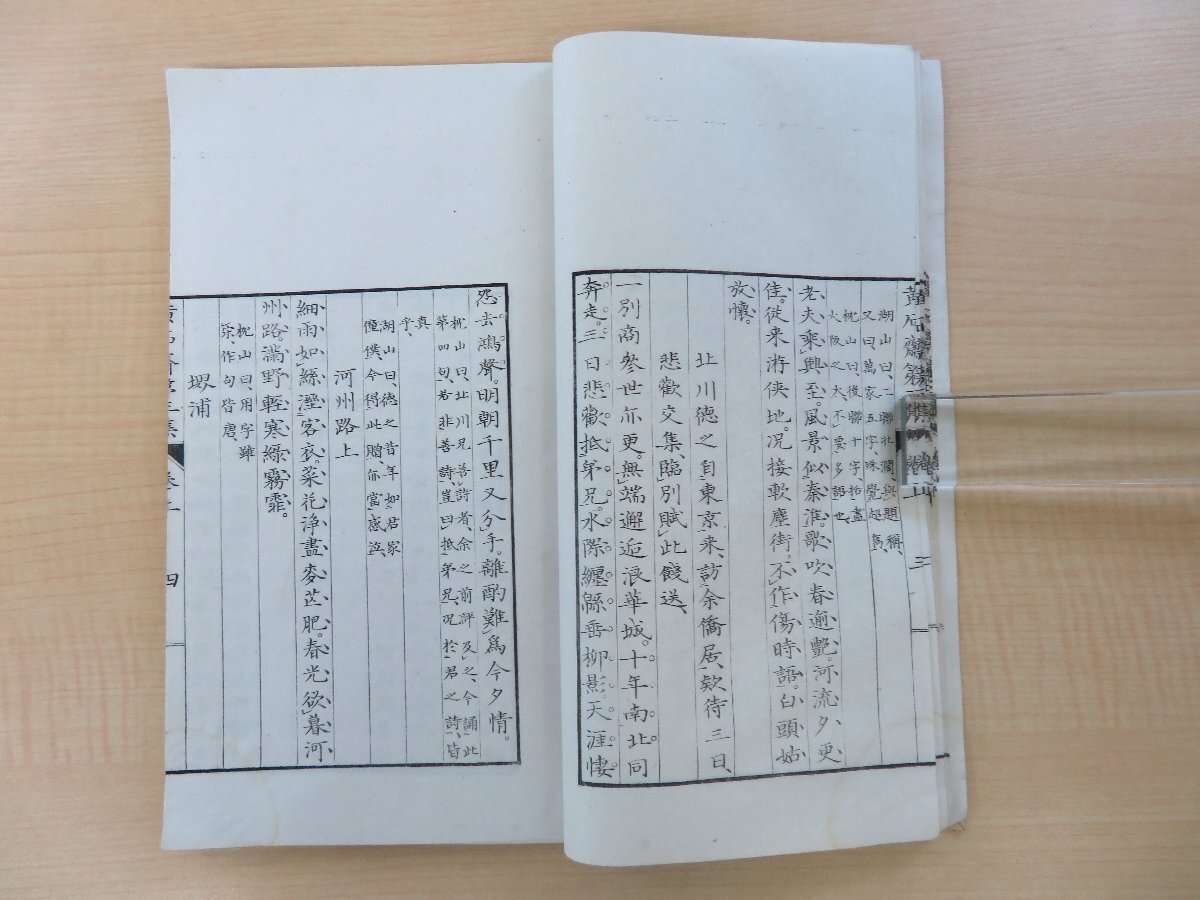 黄石齋第集
三
湖山曰、二聯壯濶、與題稱、
又曰、萬家五字、殊覺超雋、
枕山曰、後聯十字、括盡
大阪之大、不要多語也、
老夫乘興至。風景似秦淮。歌吹春逾艷。河流夕更
佳。從来游俠地。况接軟塵街。不作傷時語。白頭姑
放懷。
北川德之自東京来、訪余僑居、欵待三日、
悲歡交集、臨別賦此餞送、
一別商參世亦更。無端邂逅浪華城。十年南北同
奔走。三日悲歡抵弟兄。水際纏緜垂柳影。天涯悽
恐去鴻聲。明朝千里又分手。離酌難爲今夕情。
枕山曰、北川兄善詩者、余之前評及之、今誦此
第四句、若非善詩、豈曰抵弟兄、况於君之詩、皆
真
乎、
湖山曰、德之昔年如君家
僮僕、今得此贈亦當感泣、
河州路上
細雨如絲溼客衣。菜花浄盡麥芒肥。春光欲暮河
州路。滿野輕寒綠霧霏。
枕山曰、用字雖
茶、作句皆唐、
堺浦
四